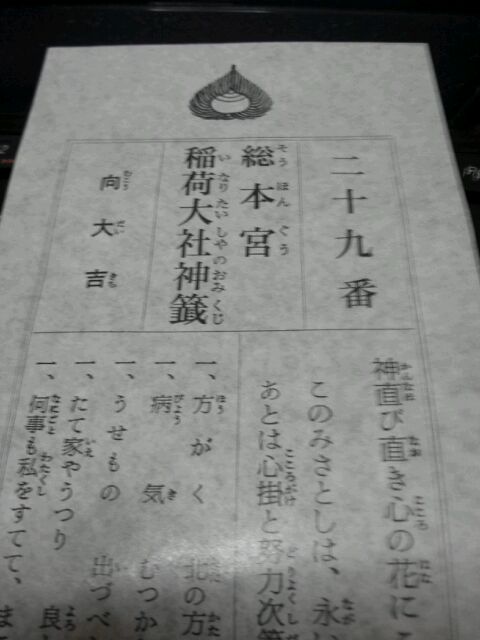 二十九番
総本宮
稲荷大社神籤
向大吉
神直び直き心の花に
このみさとしは、永
あとは心掛と努力次第
一、方がく 北の方
一、病気 むつか
一、うせもの 出づべ
一、たて家やうつり 良
一、何事も私をすてて、ま